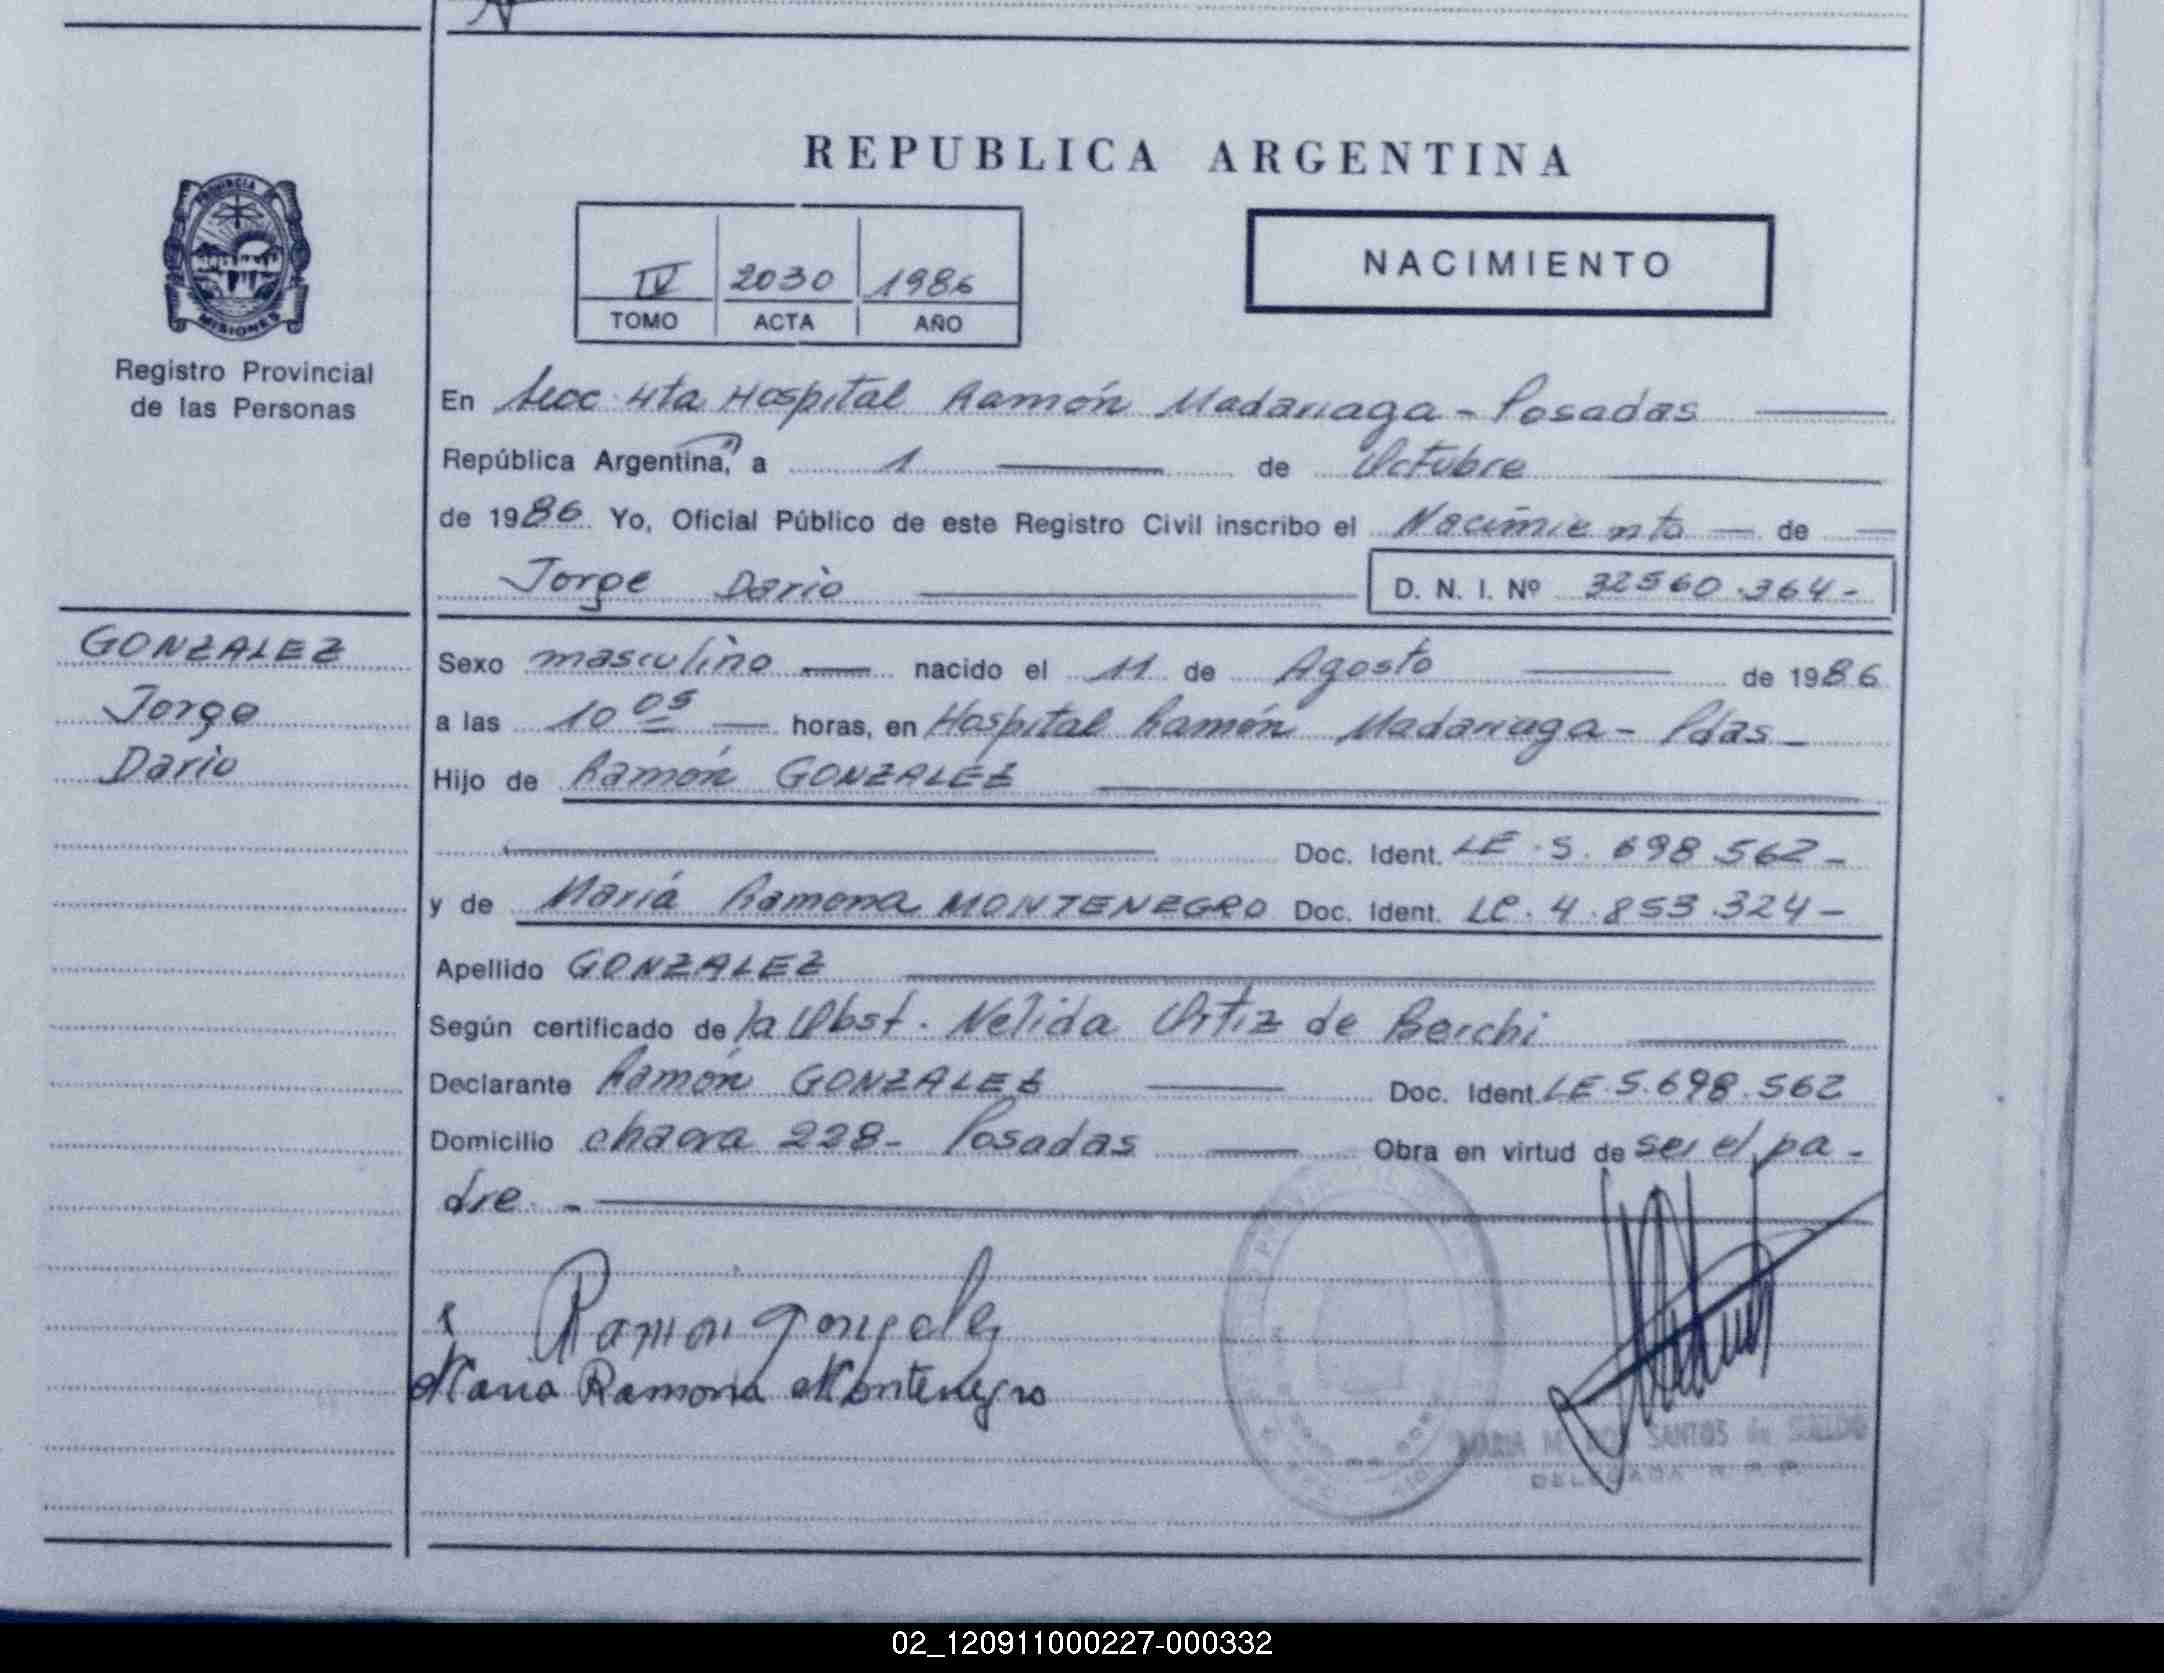 REPUBLICA ARGENTINA
PROVINCIA
MISIONES
Registro Provincial
de las Personas
IV 2030 1986
TOMO ACTA AÑO
NACIMIENTO
En Secc 4ta Hospital Ramón Madariaga - Posadas
República Argentina, a 1 de Octubre
de 1986 Yo, Oficial Público de este Registro Civil inscribo el Nacimiento de
Jorge Dario D. N. I. Nº 32560.364-
GONZALEZ
Jorge
Dario
Sexo masculino nacido el 11 de Agosto de 1986
a las 10 05 horas, en Hospital Ramón Madariaga - Pdas -
Hijo de Ramón GONZALEZ
Doc. Ident. LE.5.698.562-
y de María Ramona MONTENEGRO Doc. Ident. LC.4.853.324-
Apellido GONZALEZ
Según certificado de la Obst. Nelida Ortiz de Berchi
Declarante Ramón GONZALEZ Doc. Ident. LE.5.698.562
Domicilio chacra 228- Posadas Obra en virtud de ser el pa-
dre. -
x Ramon gonzalez
Maria Ramona Montenegro
MARIA M. DOS SANTOS de SUELDO
DELEGADA
02_120911000227-000332